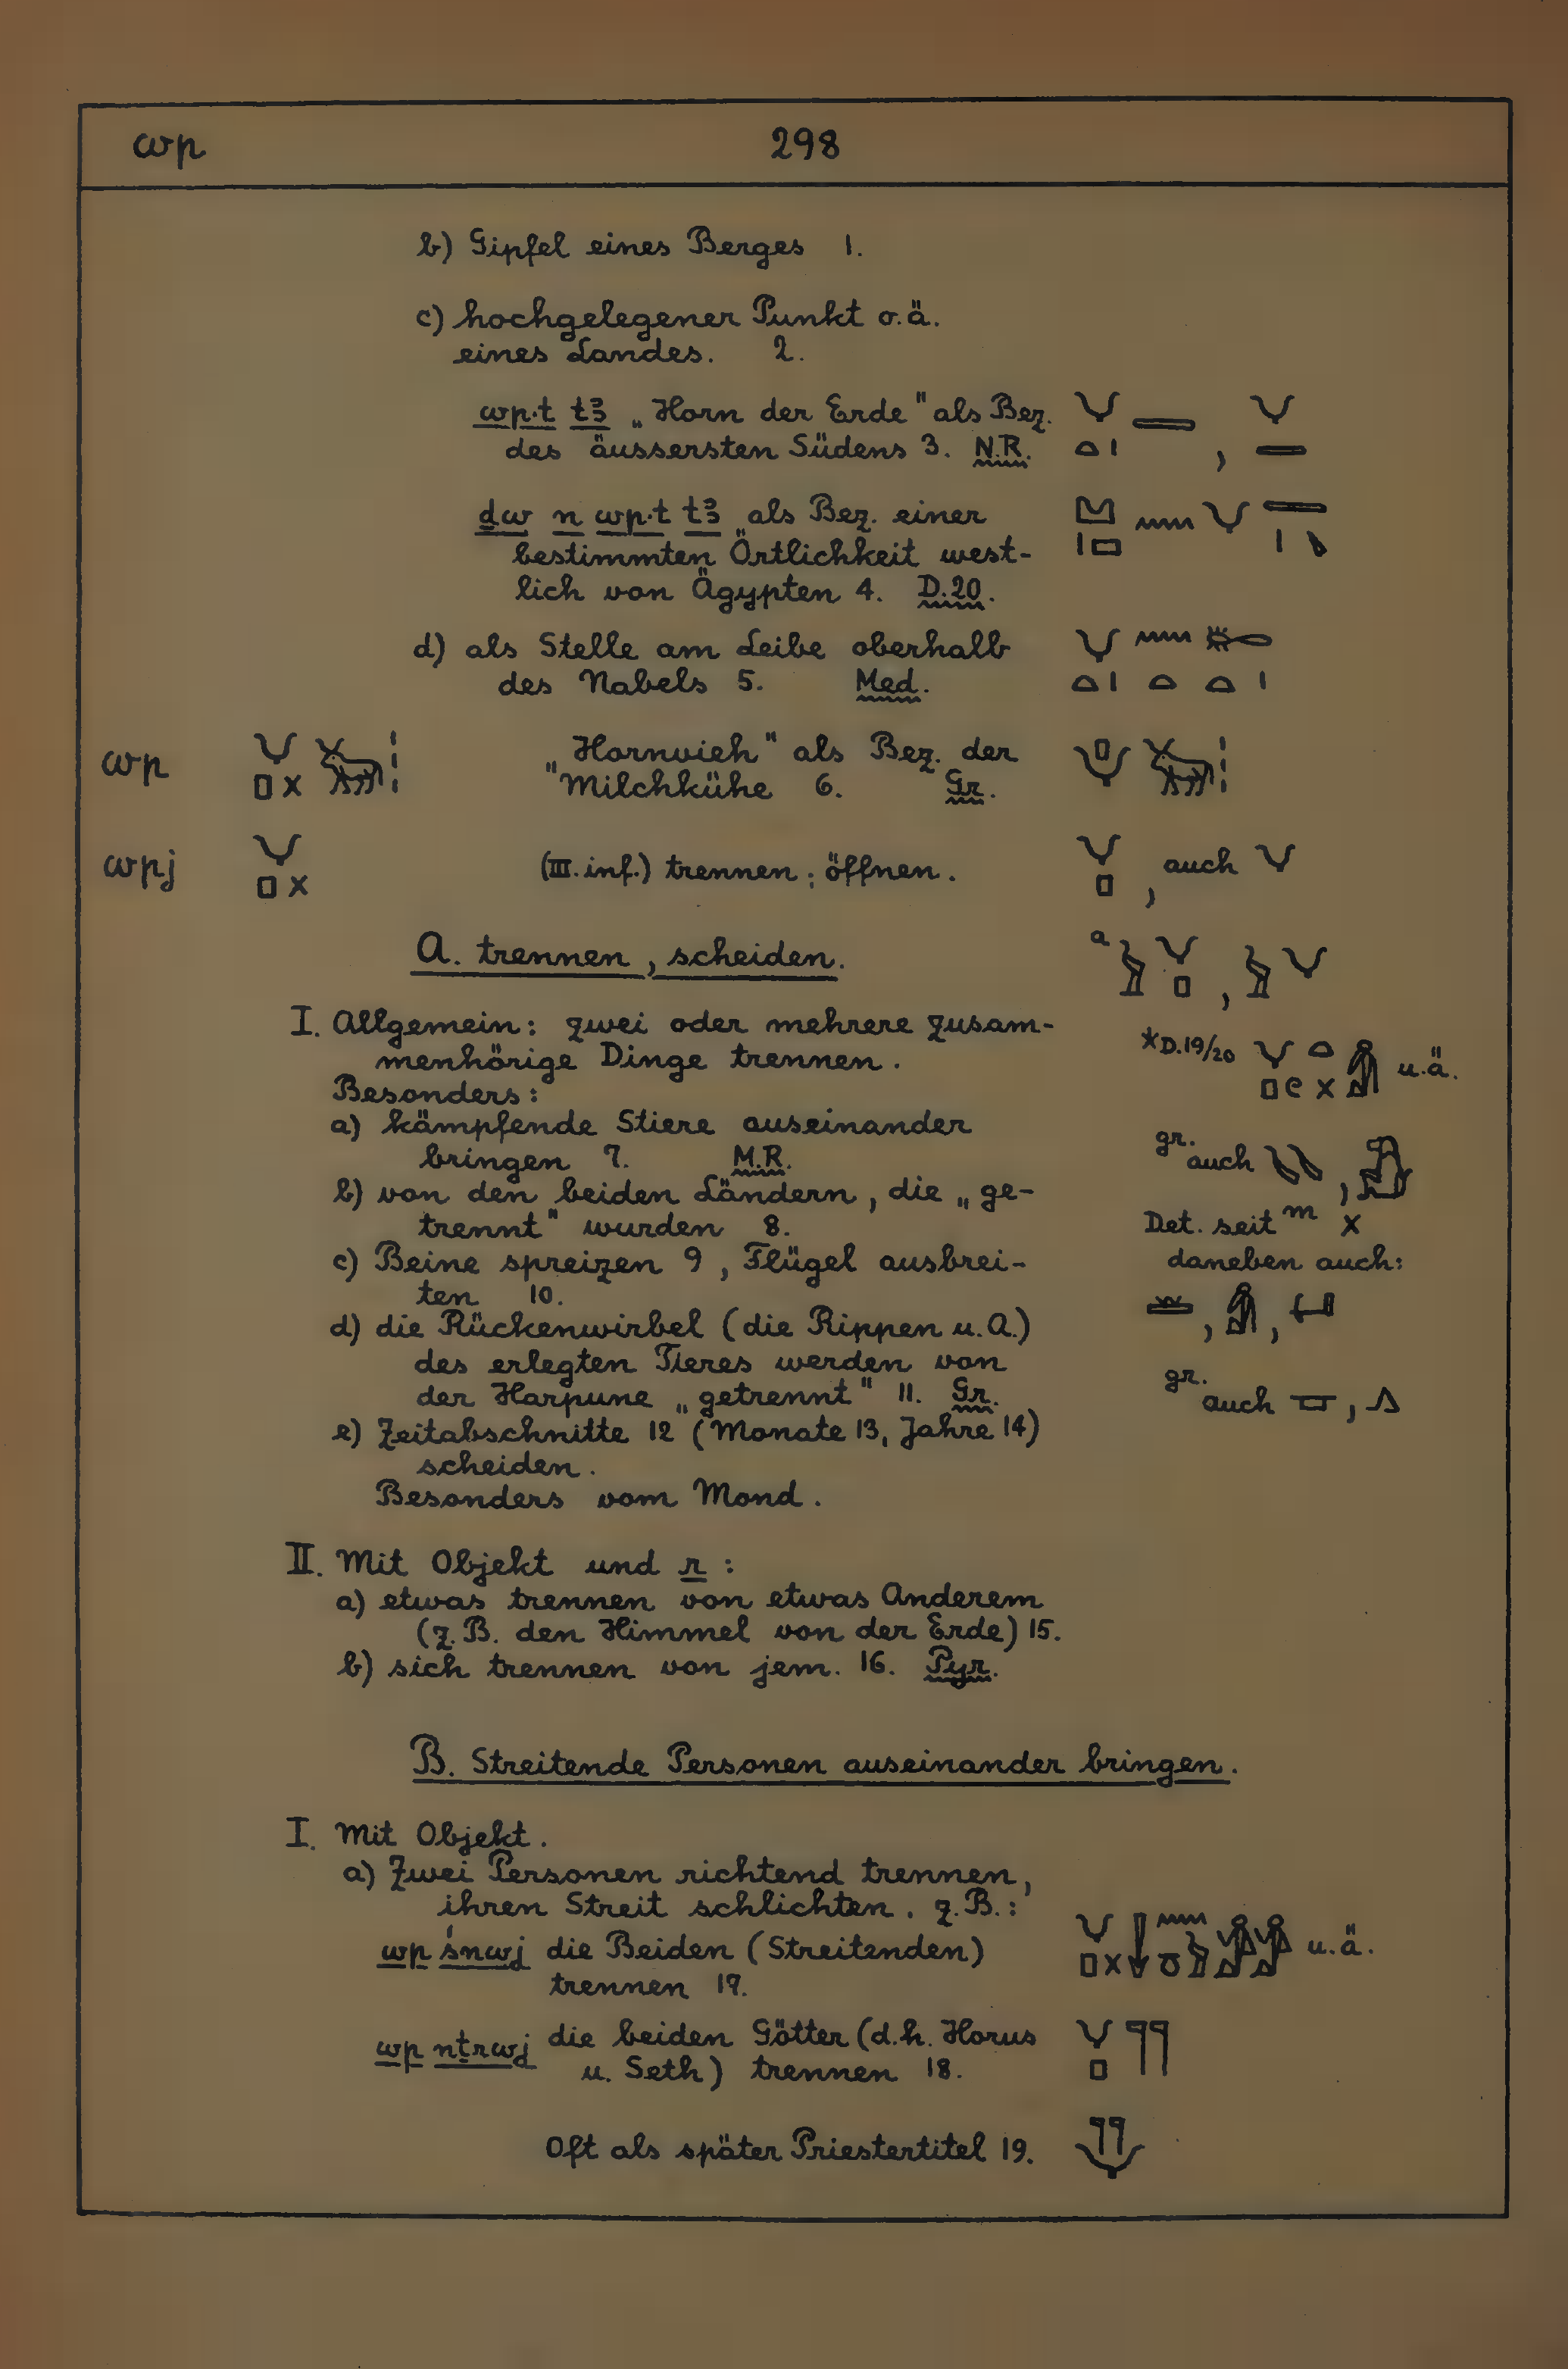 wp 298
b) Gipfel eines Berges 1.
c) hochgelegener Punkt o.ä.
eines Landes. 2.
wp·t tꜣ „Horn der Erde" als Bez.
des äussersten Südens 3. N.R.
ḏw n wp·t tꜣ als Bez. einer
bestimmten Örtlichkeit west-
lich von Ägypten 4. D.20.
d) als Stelle am Leibe oberhalb
des Nabels 5. Med.
wp „Hornvieh" als Bez. der
Milchkühe 6. Gr.
wpj (III. inf.) trennen; öffnen. , auch
A. trennen, scheiden.
a ,
I. Allgemein: zwei oder mehrere zusam-
menhörige Dinge trennen.
*D.19/20 u.ä.
Besonders:
a) kämpfende Stiere auseinander
bringen 7. M.R.
gr. auch ,
b) von den beiden Ländern, die „ge-
trennt" wurden 8.
Det. seit m x
c) Beine spreizen 9, Flügel ausbrei-
ten 10.
daneben auch:
d) die Rückenwirbel (die Rippen u.A.)
des erlegten Tieres werden von
der Harpune „getrennt" 11. Gr.
gr. auch ,
e) Zeitabschnitte 12 (Monate 13, Jahre 14)
scheiden.
Besonders vom Mond.
II. Mit Objekt und r:
a) etwas trennen von etwas Anderem
(z.B. den Himmel von der Erde) 15.
b) sich trennen von jem. 16. Pyr.
B. Streitende Personen auseinander bringen.
I. Mit Objekt.
a) Zwei Personen richtend trennen,
ihren Streit schlichten. z.B.:
wp śnwj die Beiden (Streitenden) u.ä.
trennen 17.
wp nṯrwj die beiden Götter (d.h. Horus
u. Seth) trennen 18.
Oft als später Priestertitel 19.